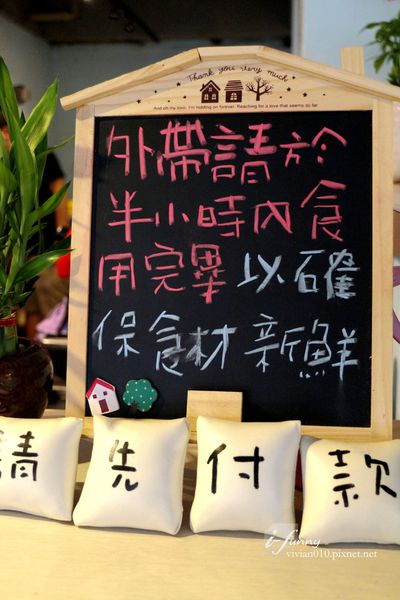 Thank you very much
And oh my love. I'm holding on forever. Reaching for a love that seems so far
外帶請於
半小時內食
用完畢以確
保食材新鮮
請先付款
i-funny
vivian010.pixnet.net